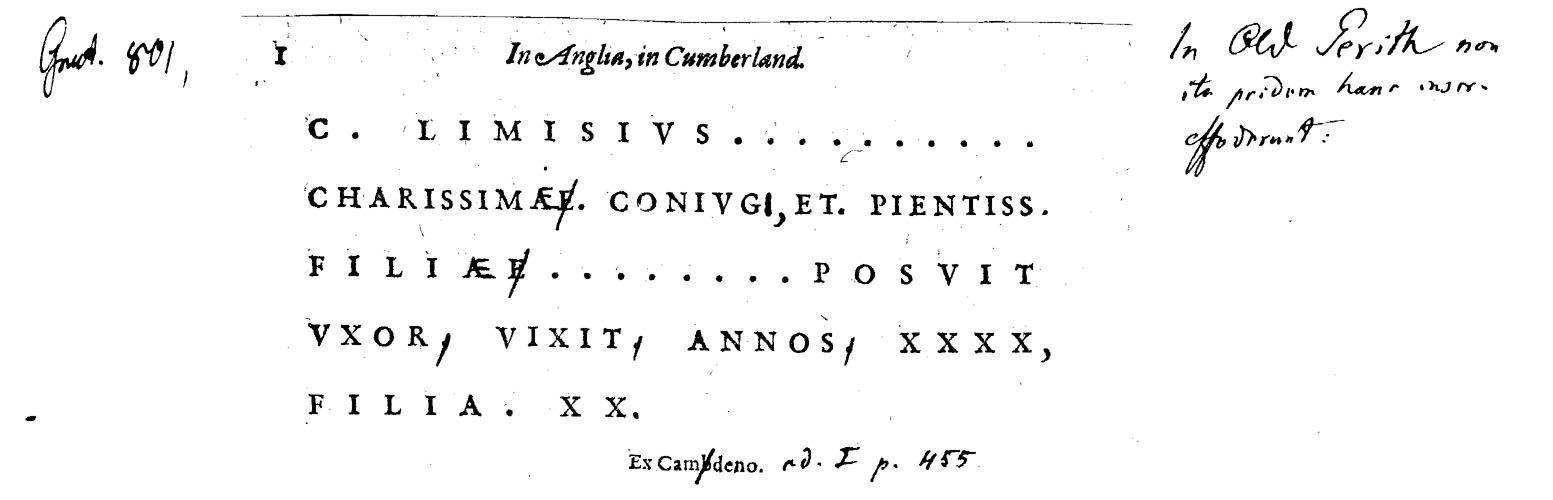 Grut. 801,
1 In Anglia, in Cumberland.
In Old Perith non
ita pridem hanc inscr.
effoderunt:
C . LIMISIVS . . . . . . . . . .
CHARISSIMÆE. CONIVGI, ET. PIENTISS.
FILIÆE . . . . . . . . POSVIT
VXOR, VIXIT, ANNOS, XXXX,
FILIA . XX.
Ex Cambdeno. ed. I p. 455